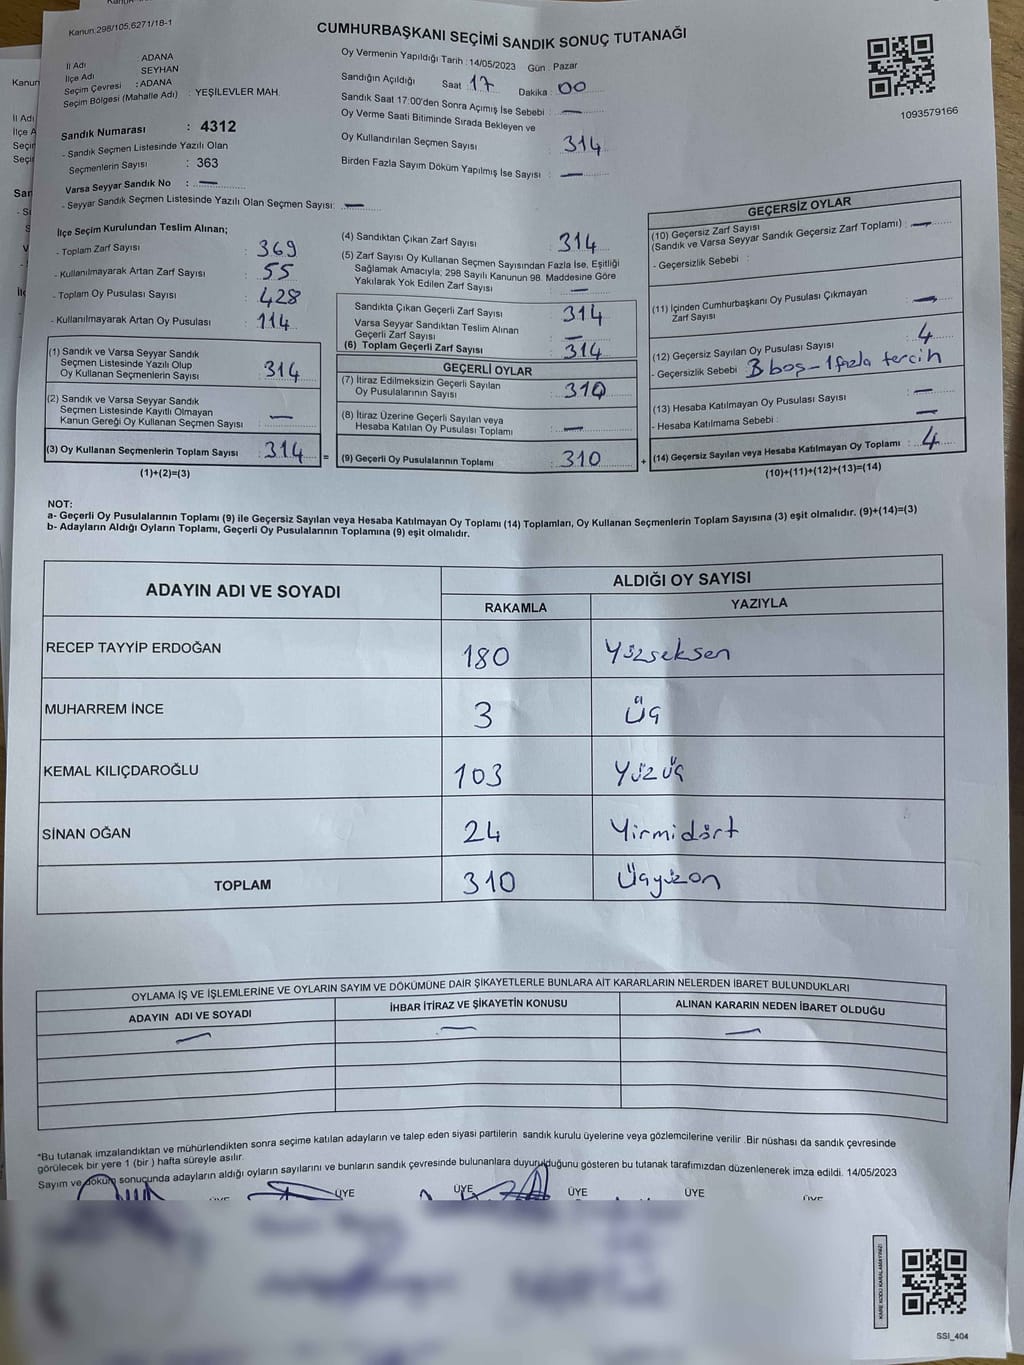 Kanun:298/105,6271/18-1
CUMHURBAŞKANI SEÇİMİ SANDIK SONUÇ TUTANAĞI
1093579166
İl Adı ADANA
İlçe Adı SEYHAN
Seçim Çevresi : ADANA
Seçim Bölgesi (Mahalle Adı) : YEŞİLEVLER MAH.
Sandık Numarası : 4312
- Sandık Seçmen Listesinde Yazılı Olan
Seçmenlerin Sayısı : 363
Varsa Seyyar Sandık No : —
- Seyyar Sandık Seçmen Listesinde Yazılı Olan Seçmen Sayısı: —
Oy Vermenin Yapıldığı Tarih : 14/05/2023 Gün : Pazar
Sandığın Açıldığı Saat 17 Dakika : 00
Sandık Saat 17:00'den Sonra Açımış İse Sebebi : —
Oy Verme Saati Bitiminde Sırada Bekleyen ve
Oy Kullandırılan Seçmen Sayısı : 314
Birden Fazla Sayım Döküm Yapılmış İse Sayısı : —
İlçe Seçim Kurulundan Teslim Alınan;
- Toplam Zarf Sayısı : 369
- Kullanılmayarak Artan Zarf Sayısı : 55
- Toplam Oy Pusulası Sayısı : 428
- Kullanılmayarak Artan Oy Pusulası : 114
(1) Sandık ve Varsa Seyyar Sandık
Seçmen Listesinde Yazılı Olup
Oy Kullanan Seçmenlerin Sayısı : 314
(2) Sandık ve Varsa Seyyar Sandık
Seçmen Listesinde Kayıtlı Olmayan
Kanun Gereği Oy Kullanan Seçmen Sayısı : —
(3) Oy Kullanan Seçmenlerin Toplam Sayısı : 314 =
(1)+(2)=(3)
(4) Sandıktan Çıkan Zarf Sayısı : 314
(5) Zarf Sayısı Oy Kullanan Seçmen Sayısından Fazla İse, Eşitliği
Sağlamak Amacıyla; 298 Sayılı Kanunun 98. Maddesine Göre
Yakılarak Yok Edilen Zarf Sayısı : —
Sandıkta Çıkan Geçerli Zarf Sayısı : 314
Varsa Seyyar Sandıktan Teslim Alınan
Geçerli Zarf Sayısı : —
(6) Toplam Geçerli Zarf Sayısı : 314
GEÇERLİ OYLAR
(7) İtiraz Edilmeksizin Geçerli Sayılan
Oy Pusulalarının Sayısı : 310
(8) İtiraz Üzerine Geçerli Sayılan veya
Hesaba Katılan Oy Pusulası Toplamı : —
(9) Geçerli Oy Pusulalarının Toplamı : 310 +
GEÇERSİZ OYLAR
(10) Geçersiz Zarf Sayısı
(Sandık ve Varsa Seyyar Sandık Geçersiz Zarf Toplamı) : —
- Geçersizlik Sebebi :
(11) İçinden Cumhurbaşkanı Oy Pusulası Çıkmayan
Zarf Sayısı —
(12) Geçersiz Sayılan Oy Pusulası Sayısı : 4
- Geçersizlik Sebebi : 3 boş - 1 fazla tercih
(13) Hesaba Katılmayan Oy Pusulası Sayısı : —
- Hesaba Katılmama Sebebi : —
(14) Geçersiz Sayılan veya Hesaba Katılmayan Oy Toplamı : 4
(10)+(11)+(12)+(13)=(14)
NOT:
a- Geçerli Oy Pusulalarının Toplamı (9) ile Geçersiz Sayılan veya Hesaba Katılmayan Oy Toplamı (14) Toplamları, Oy Kullanan Seçmenlerin Toplam Sayısına (3) eşit olmalıdır. (9)+(14)=(3)
b- Adayların Aldığı Oyların Toplamı, Geçerli Oy Pusulalarının Toplamına (9) eşit olmalıdır.
ADAYIN ADI VE SOYADI ALDIĞI OY SAYISI
RAKAMLA YAZIYLA
RECEP TAYYİP ERDOĞAN 180 Yüzseksen
MUHARREM İNCE 3 Üç
KEMAL KILIÇDAROĞLU 103 Yüzüç
SİNAN OĞAN 24 Yirmidört
TOPLAM 310 Üçyüzon
OYLAMA İŞ VE İŞLEMLERİNE VE OYLARIN SAYIM VE DÖKÜMÜNE DAİR ŞİKAYETLERLE BUNLARA AİT KARARLARIN NELERDEN İBARET BULUNDUKLARI
ADAYIN ADI VE SOYADI İHBAR İTİRAZ VE ŞİKAYETİN KONUSU ALINAN KARARIN NEDEN İBARET OLDUĞU
— — —
*Bu tutanak imzalandıktan ve mühürlendikten sonra seçime katılan adayların ve talep eden siyasi partilerin sandık kurulu üyelerine veya gözlemcilerine verilir .Bir nüshası da sandık çevresinde
görülecek bir yere 1 (bir ) hafta süreyle asılır.
Sayım ve döküm sonucunda adayların aldığı oyların sayılarını ve bunların sandık çevresinde bulunanlara duyurulduğunu gösteren bu tutanak tarafımızdan düzenlenerek imza edildi. 14/05/2023
ÜYE ÜYE ÜYE ÜYE ÜYE ÜYE
KARE KODU KARALAMAYINIZ!
SSI_404